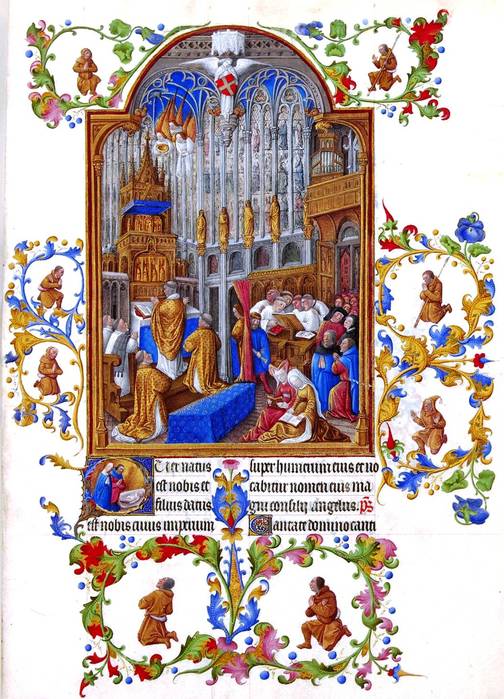 Puer natus
est nobis et
filius datus
est nobis cuius imperium
super humerum eius et vo
cabitur nomen eius ma
gni consilij angelus. ps
Cantate domino canti